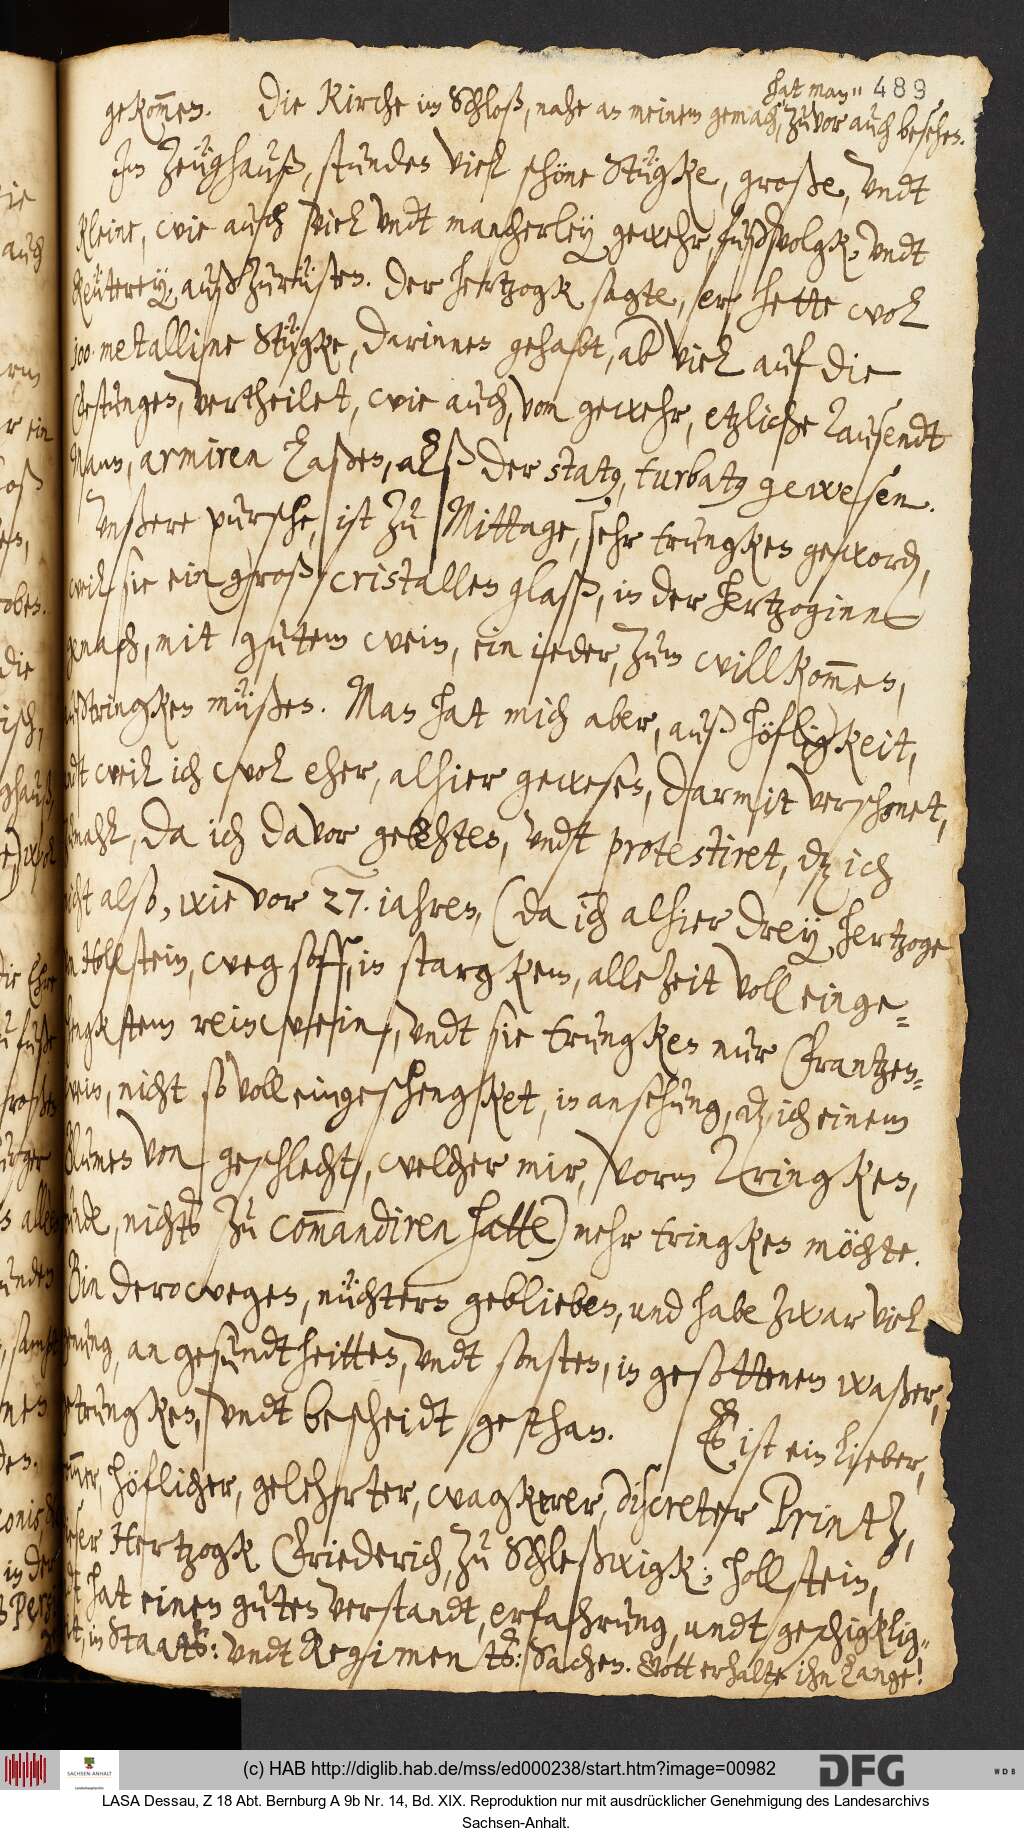 hat man 489
gekom̄en. Die Kirche im Schloß, nahe an meinem gemach, zuvor auch besehen.
Im Zeüghauß, stunden viel schöne Stügke, große, undt
kleine, wie auch viel undt mancherley gewehr, fußvolgk, undt
Reüterey, außzurüsten. Der Hertzogk sagte, er hette wol
100 metalline Stügke, darinnen gehabt, ab viel auf die
Vestungen, vertheilet, wie auch, von gewehr, etzliche Tausendt
Mann, armiren laßen, alß der statꝰ, turbatꝰ gewesen.
Unßere pursche, ist zu Mittage, sehr trungken geword,
weil sie ein groß cristallen glaß, in der Hertzoginn
gmach, mit gutem wein, ein ieder, zum willkom̄en,
außtringken müßen. Man hat mich aber, auß höfligkeit,
undt weil ich wol eher, alhier gewesen, darmit verschonet,
zumahl, da ich davor gebehten, undt protestiret, dz ich
nicht also, wie vor 27. iahren, (da ich alhier drey Hertzoge
von Hollstein, weg soff, in stargkem, allezeit voll einge-
schengktem reinwein, undt sie trungken nur Frantzen-
wein, nicht so voll eingeschengket, in ansehung, dz ich einem
Blumen von geschlecht, welcher mir, vorm Tringken,
nichts zu com̄andiren hatte) mehr tringken möchte.
Bin derowegen, nüchtern geblieben, und habe zwar viel
genung, an gesundtheitten, undt sonsten, in gesottenem waßer,
getrungken, undt bescheidt gethan. Es ist ein lieber,
from̄er, höflicher, gelehrter, wagkerer, discreter Printz,
dieser Hertzogk Friederich, zu Schleßwigk, Hollstein,
undt hat einen guten verstandt, erfahrung, undt geschigklig-
keit, in Staats: undt Regiments: Sachen. Gott erhalte ihn lange!
(c) HAB http://diglib.hab.de/mss/ed000238/start.htm?image=00982
SACHSEN-ANHALT
DFG
WDB
LASA Dessau, Z 18 Abt. Bernburg A 9b Nr. 14, Bd. XIX. Reproduktion nur mit ausdrücklicher Genehmigung des Landesarchivs
Sachsen-Anhalt.